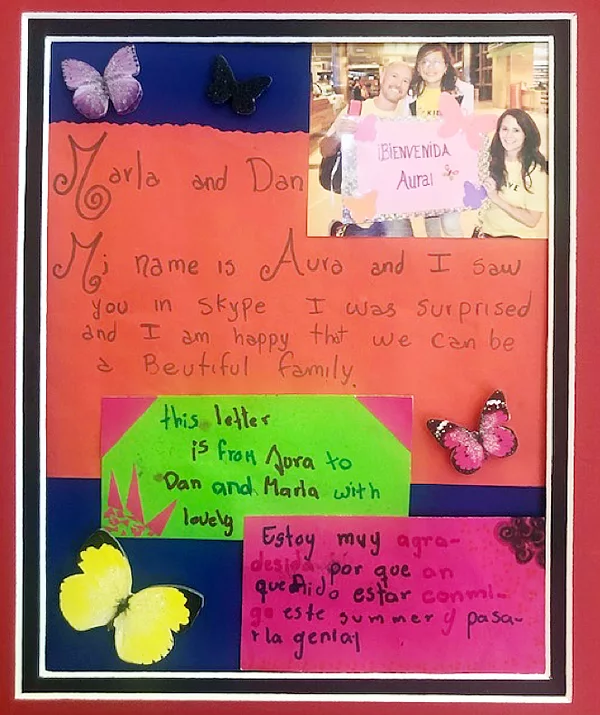 Marla and Dan
¡BIENVENIDA
Aura!
Mi name is Aura and I saw
you in Skype I was surprised
and I am happy that we can be
a Beutiful family.
this letter
is from Aura to
Dan and Marla with
lovely
Estoy muy agra-
desida por que an
querido estar conmi-
go este summer y pasa-
rla genial